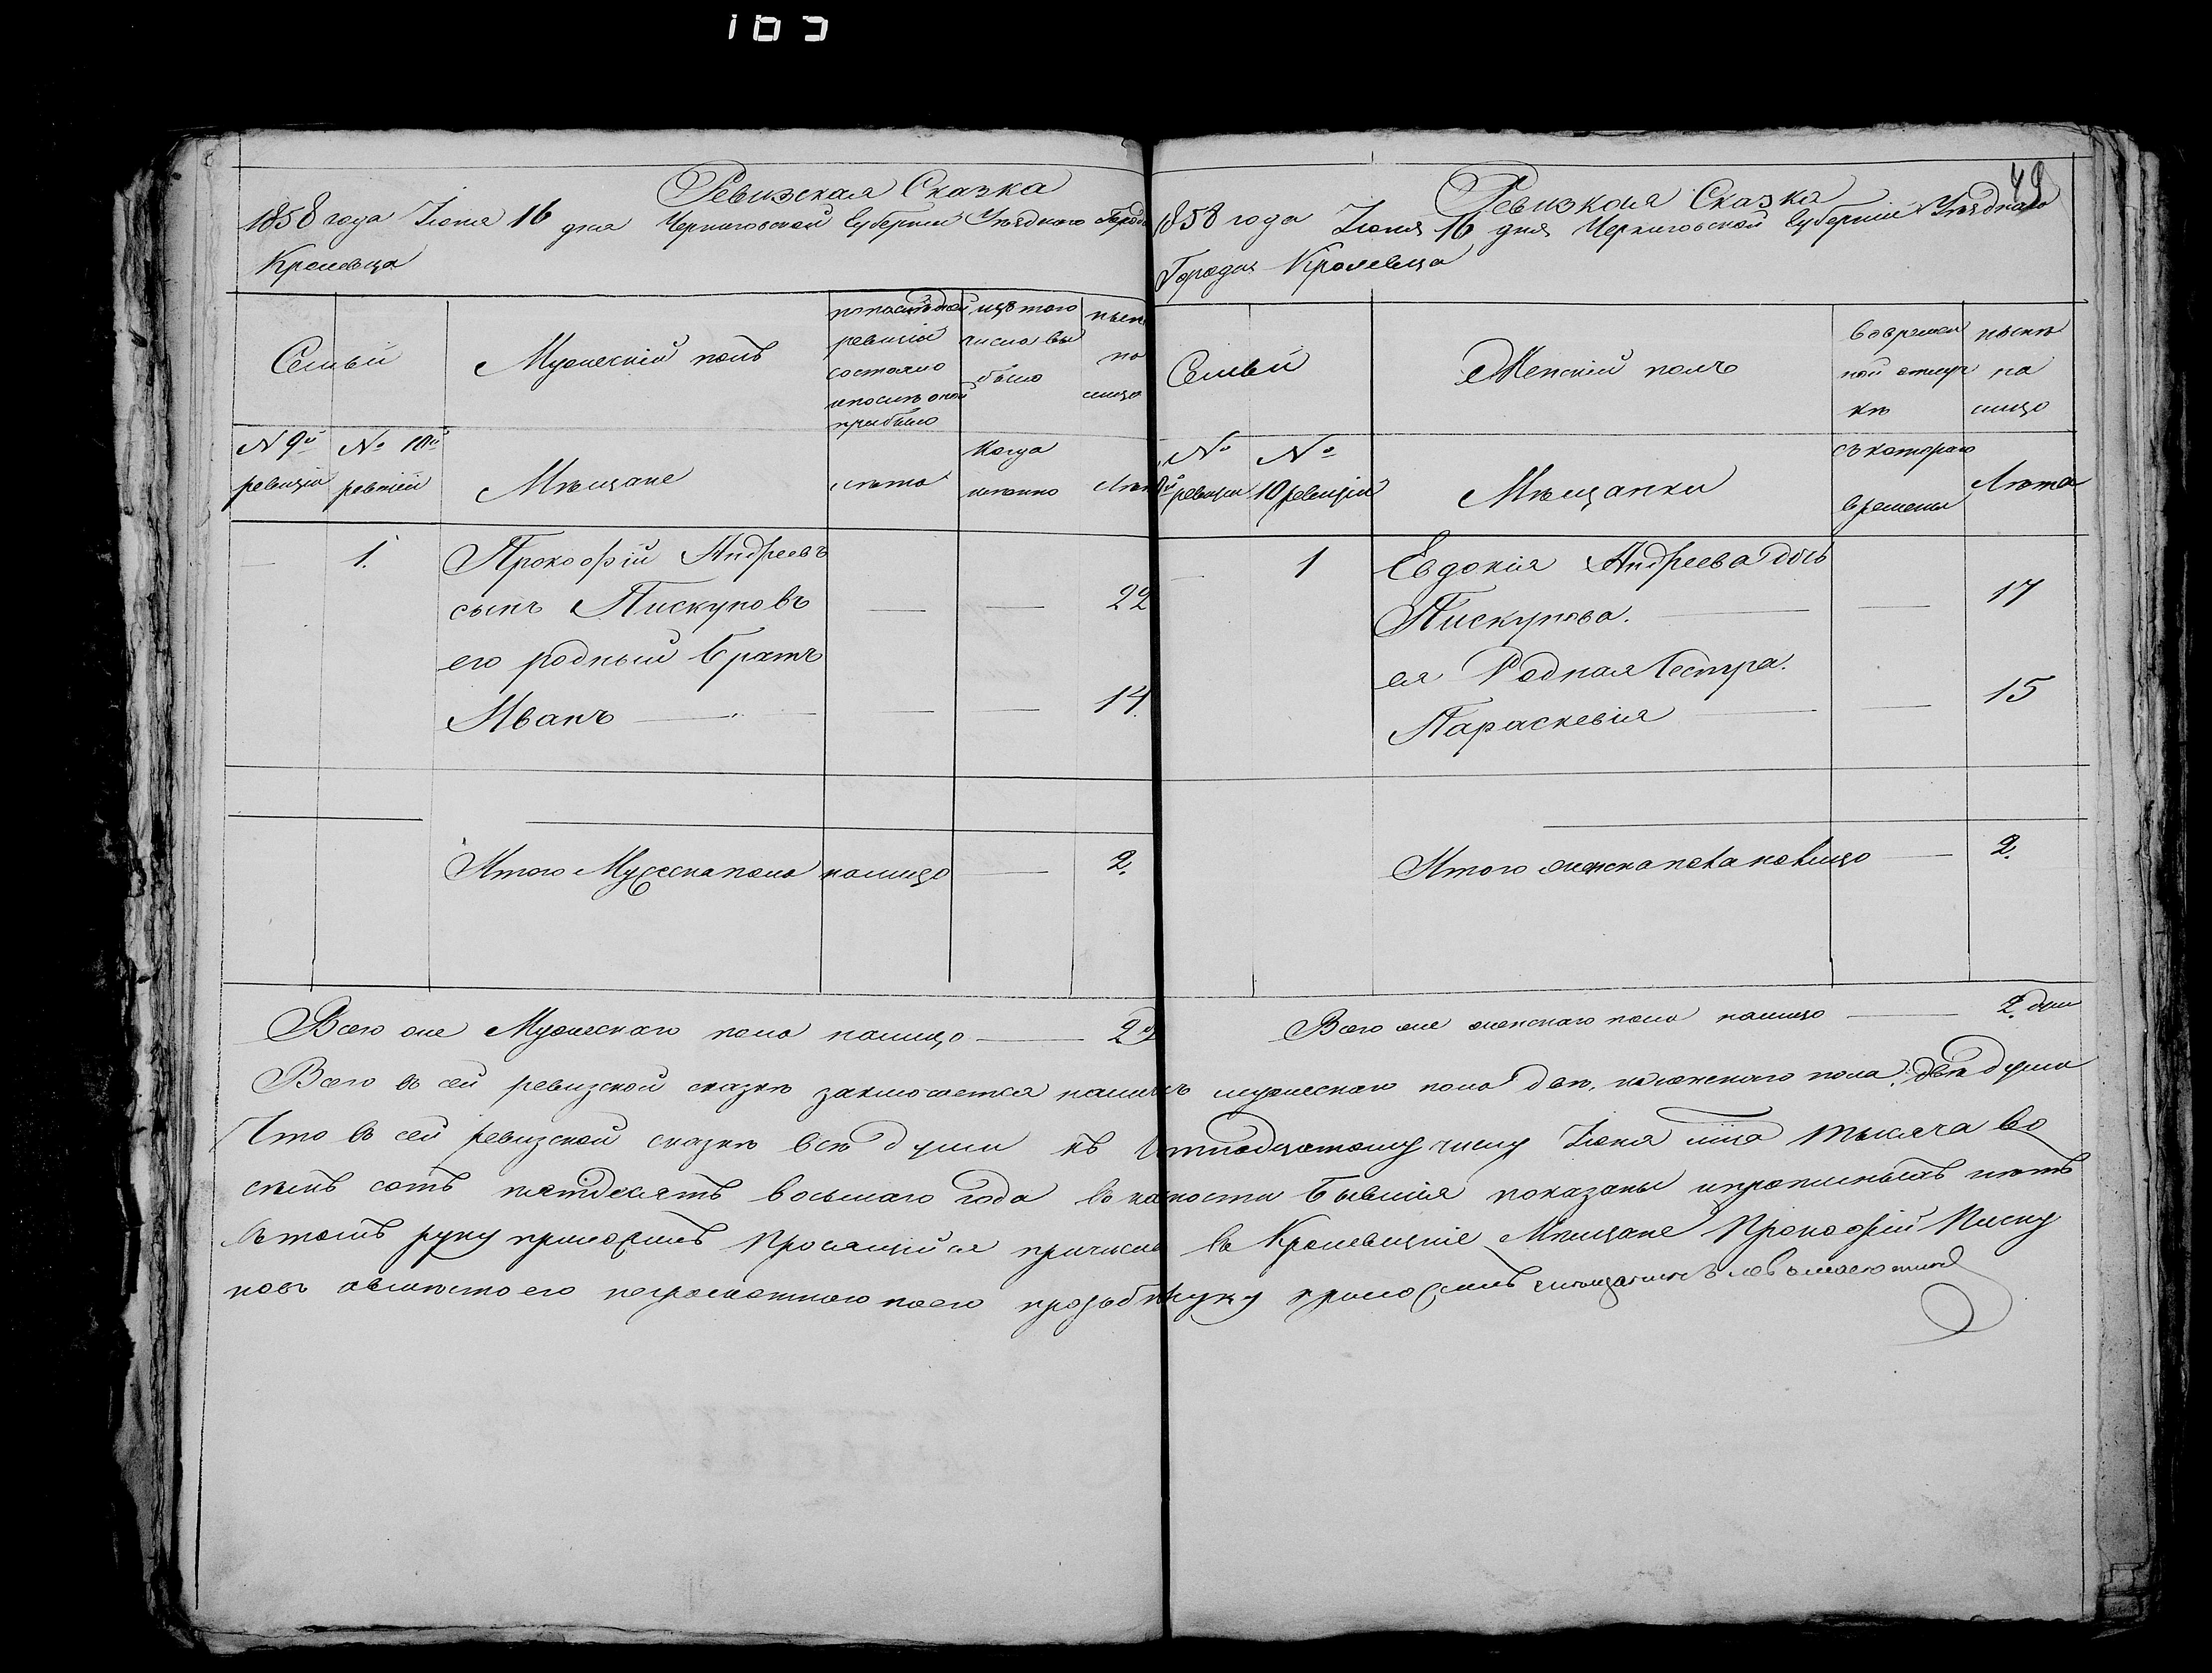 Ревизская Сказка
1858 года Іюня 16 дня Черниговской Губерніи Уѣзднаго Города
Кролевца
Семьи
Мужескій полъ
по послѣдней
ревизіи
состояло
и послѣ оной
прибыло
изъ того
числа вы
было
нынѣ
на
лицо
№ 9й
ревизіи
№ 10й
ревизіи
Мѣщане
лѣта
Когда
именно
Лѣта
1.
Прокофій Андреевъ
сынъ Пискуновъ
22
его родный братъ
Иванъ
14
Итого Мужеска пола на лицо
2.
Всего же Мужескаго пола на лицо
49
Ревизкая Сказка
1858 года Іюня 16 дня Черниговской Губерніи Уѣзднаго
Города Кролевца
Семьи
Женскій полъ
во времен
ной отлуч
кѣ
нынѣ
на
лицо
№
й ревизіи
№
10 ревизіи
Мѣщанки
съ котораго
времени
Лѣта
1
Евдокія Андреева дочь
Пискунова.
17
ея Родная Сестра.
Параскевія
15
Итого женска пола на лицо
2.
Всего же женскаго пола на лицо 2. души
Всего въ сей ревизской сказкѣ заключается мужескаго пола двѣ, женскаго пола двѣ души
Что въ сей ревизской сказкѣ всѣ души къ числу Іюня тысяча во
семь сотъ пятдесятъ восьмаго года въ наличности бывшія показаны и прописныхъ нѣтъ
въ томъ руку приложилъ въ Кролевецкіе Мѣщане Прокофій Писку
новъ а вмѣсто его неграмотнаго по его прозьбѣ руку приложилъ